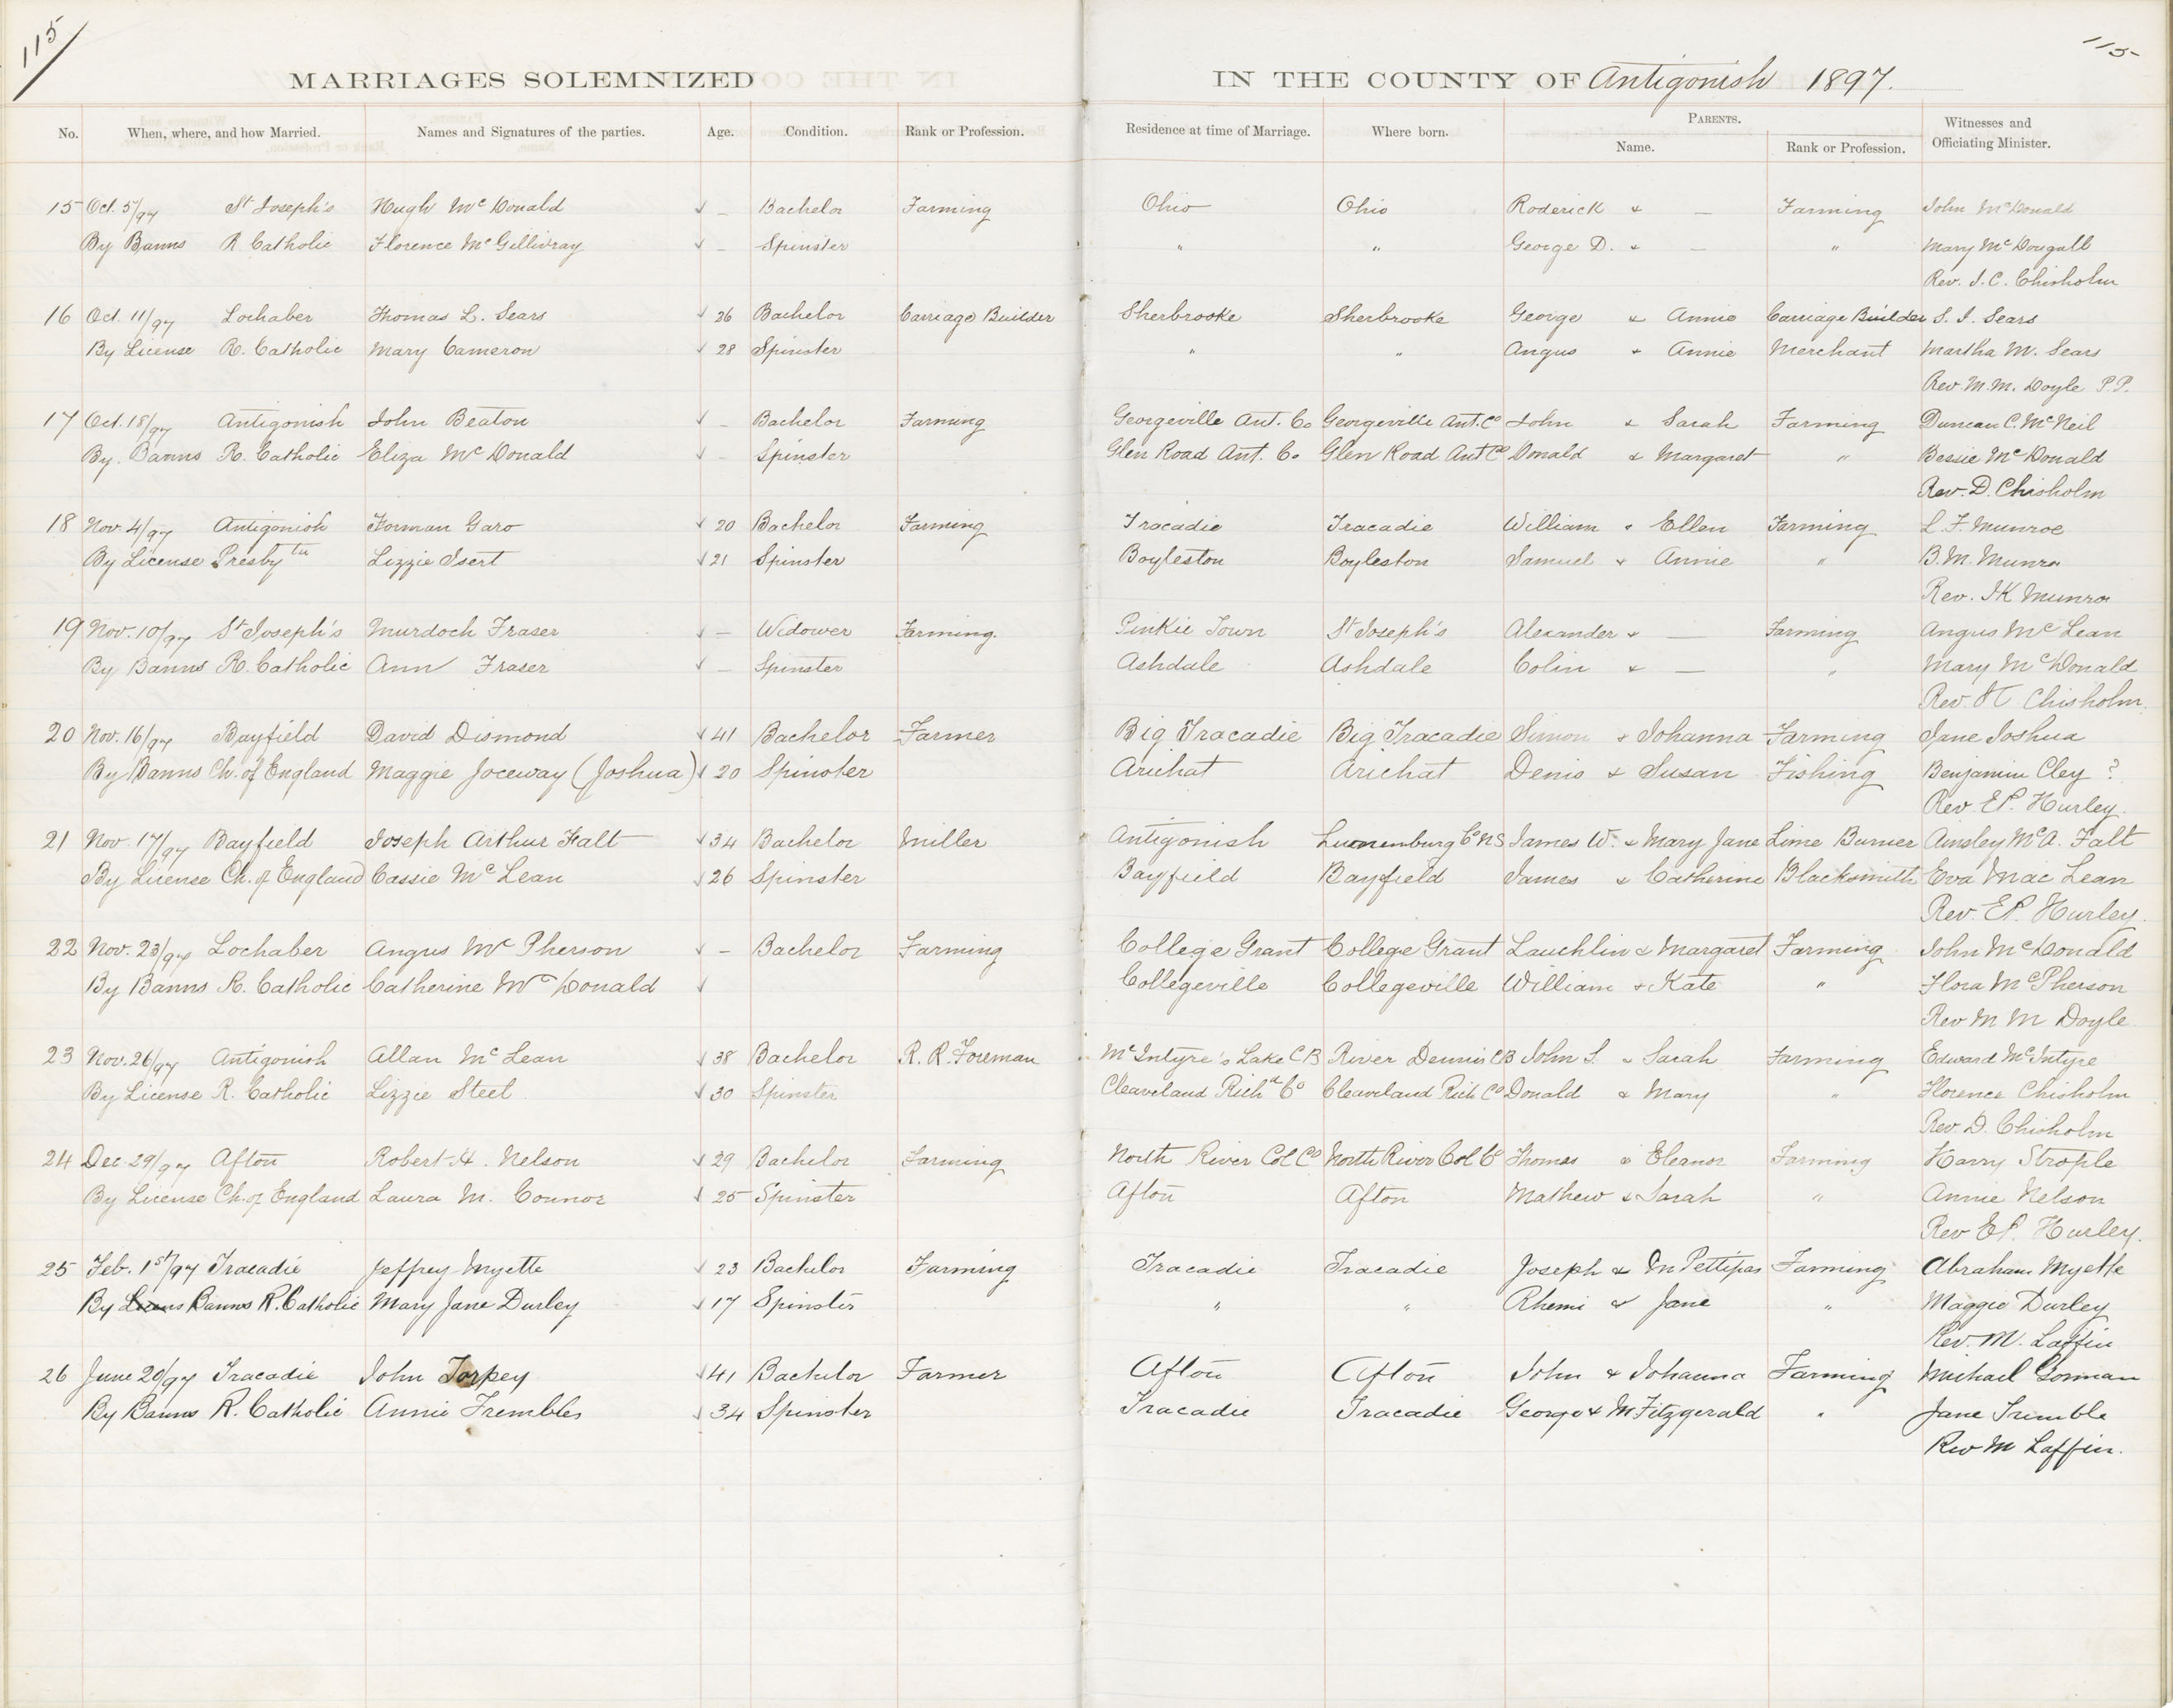 115 115
MARRIAGES SOLEMNIZED IN THE COUNTY OF Antigonish 1897.
No. When, where, and how Married. Names and Signatures of the parties. Age. Condition. Rank or Profession. Residence at time of Marriage. Where born. PARENTS. Name. Rank or Profession. Witnesses and Officiating Minister.
15 Oct. 5/97 St Joseph's Hugh McDonald √ – Bachelor Farming Ohio Ohio Roderick & — Farming John McDonald
By Banns R. Catholic Florence McGillivray √ – Spinster " " George D. & — " Mary McDougall
Rev. J. C. Chisholm
16 Oct. 11/97 Lochaber Thomas L. Sears √ 26 Bachelor Carriage Builder Sherbrooke Sherbrooke George & Annie Carriage Builder S. J. Sears
By License R. Catholic Mary Cameron √ 28 Spinster " " Angus & Annie Merchant Martha M. Sears
Rev M. M. Doyle P.P.
17 Oct. 18/97 Antigonish John Beaton √ – Bachelor Farming Georgeville Ant. Co Georgeville Ant. Co John & Sarah Farming Duncan C. McNeil
By Banns R. Catholic Eliza McDonald √ – Spinster Glen Road Ant. Co. Glen Road Ant Co Donald & Margaret " Bessie McDonald
Rev. D. Chisholm
18 Nov. 4/97 Antigonish Forman Garo √ 20 Bachelor Farming Tracadie Tracadie William & Ellen Farming L. F. Munroe
By License Presbytn Lizzie Isert √ 21 Spinster Boyleston Boyleston Samuel & Annie " B. M. Munro
Rev. JK Munro
19 Nov. 10/97 St Joseph's Murdoch Fraser √ – Widower Farming. Pinkie Town St Joseph's Alexander & — Farming Angus McLean
By Banns R. Catholic Ann Fraser √ – Spinster Ashdale Ashdale Colin & — " Mary McDonald
Rev. Chisholm.
20 Nov. 16/97 Bayfield David Dismond √ 41 Bachelor Farmer Big Tracadie Big Tracadie Simon & Johanna Farming Jane Joshua
By Banns Ch. of England Maggie Joceway (Joshua) √ 20 Spinster Arichat Arichat Denis & Susan Fishing Benjamin Cley ?
Rev EP. Hurley.
21 Nov 17/97 Bayfield Joseph Arthur Falt √ 34 Bachelor Miller Antigonish Lunenburg Co NS James W. & Mary Jane Lime Burner Ainsley McA. Falt
By License Ch. of England Cassie McLean √ 26 Spinster Bayfield Bayfield James & Catherine Blacksmith Eva MacLean
Rev. EP. Hurley.
22 Nov. 23/97 Lochaber Angus McPherson √ – Bachelor Farming College Grant College Grant Lauchlin & Margaret Farming John McDonald
By Banns R. Catholic Catherine McDonald √ Collegeville Collegeville William & Kate " Flora McPherson
Rev M M Doyle
23 Nov. 26/97 Antigonish Allan McLean √ 38 Bachelor R. R. Foreman McIntyre's Lake CB River Dennis CB John S. & Sarah Farming Edward McIntyre
By License R. Catholic Lizzie Steel √ 30 Spinster Cleaveland Richd Co Cleaveland Rich Co Donald & Mary " Florence Chisholm
Rev. D. Chisholm
24 Dec 29/97 Afton Robert H. Nelson √ 29 Bachelor Farming North River Col Co North River Col Co Thomas & Eleanor Farming Harry Strople
By License Ch. of England Laura M. Connor √ 25 Spinster Afton Afton Mathew & Sarah " Annie Nelson
Rev EP. Hurley.
25 Feb. 1st/97 Tracadie Jeffrey Myette √ 23 Bachelor Farming Tracadie Tracadie Joseph & M Pettipas Farming Abraham Myette
By Banns R. Catholic Mary Jane Durley √ 17 Spinster " " Rhemi & Jane " Maggie Durley
Rev. M. Laffin
26 June 20/97 Tracadie John Torpey √ 41 Bachelor Farmer Afton Afton John & Johanna Farming Michael Gorman
By Banns R. Catholic Annie Trembles √ 34 Spinster Tracadie Tracadie George & M Fitzgerald " Jane Trimble
Rev M Laffin.